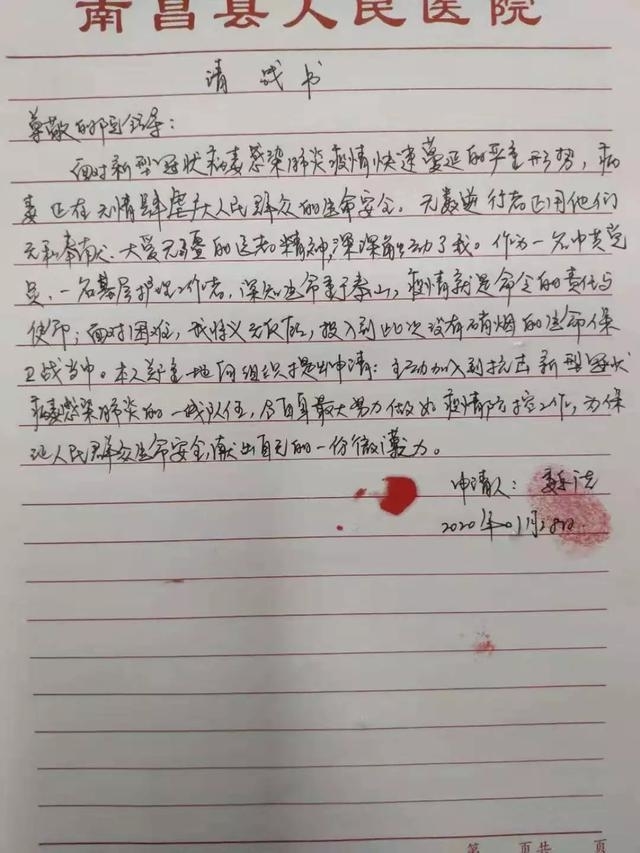 南昌县人民医院
请战书
尊敬的院领导：
面对新型冠状病毒感染肺炎疫情快速蔓延的严重形势，病
毒正在无情肆虐广大人民群众的生命安全。无数逆行者正用他们
无私奉献、大爱无疆的医者精神，深深触动了我。作为一名中共党
员、一名基层护理工作者，深知生命重于泰山，疫情就是命令的责任与
使命；面对困难，我将义无反顾，投入到此次没有硝烟的生命保
卫战当中。本人郑重地向组织提出申请：主动加入到抗击新型冠状
病毒感染肺炎的一线队伍，尽自身最大努力做好疫情防控工作，为保
证人民群众生命安全，献出自己的一份微薄力。
申请人：
2020年01月28日
第 页共 页